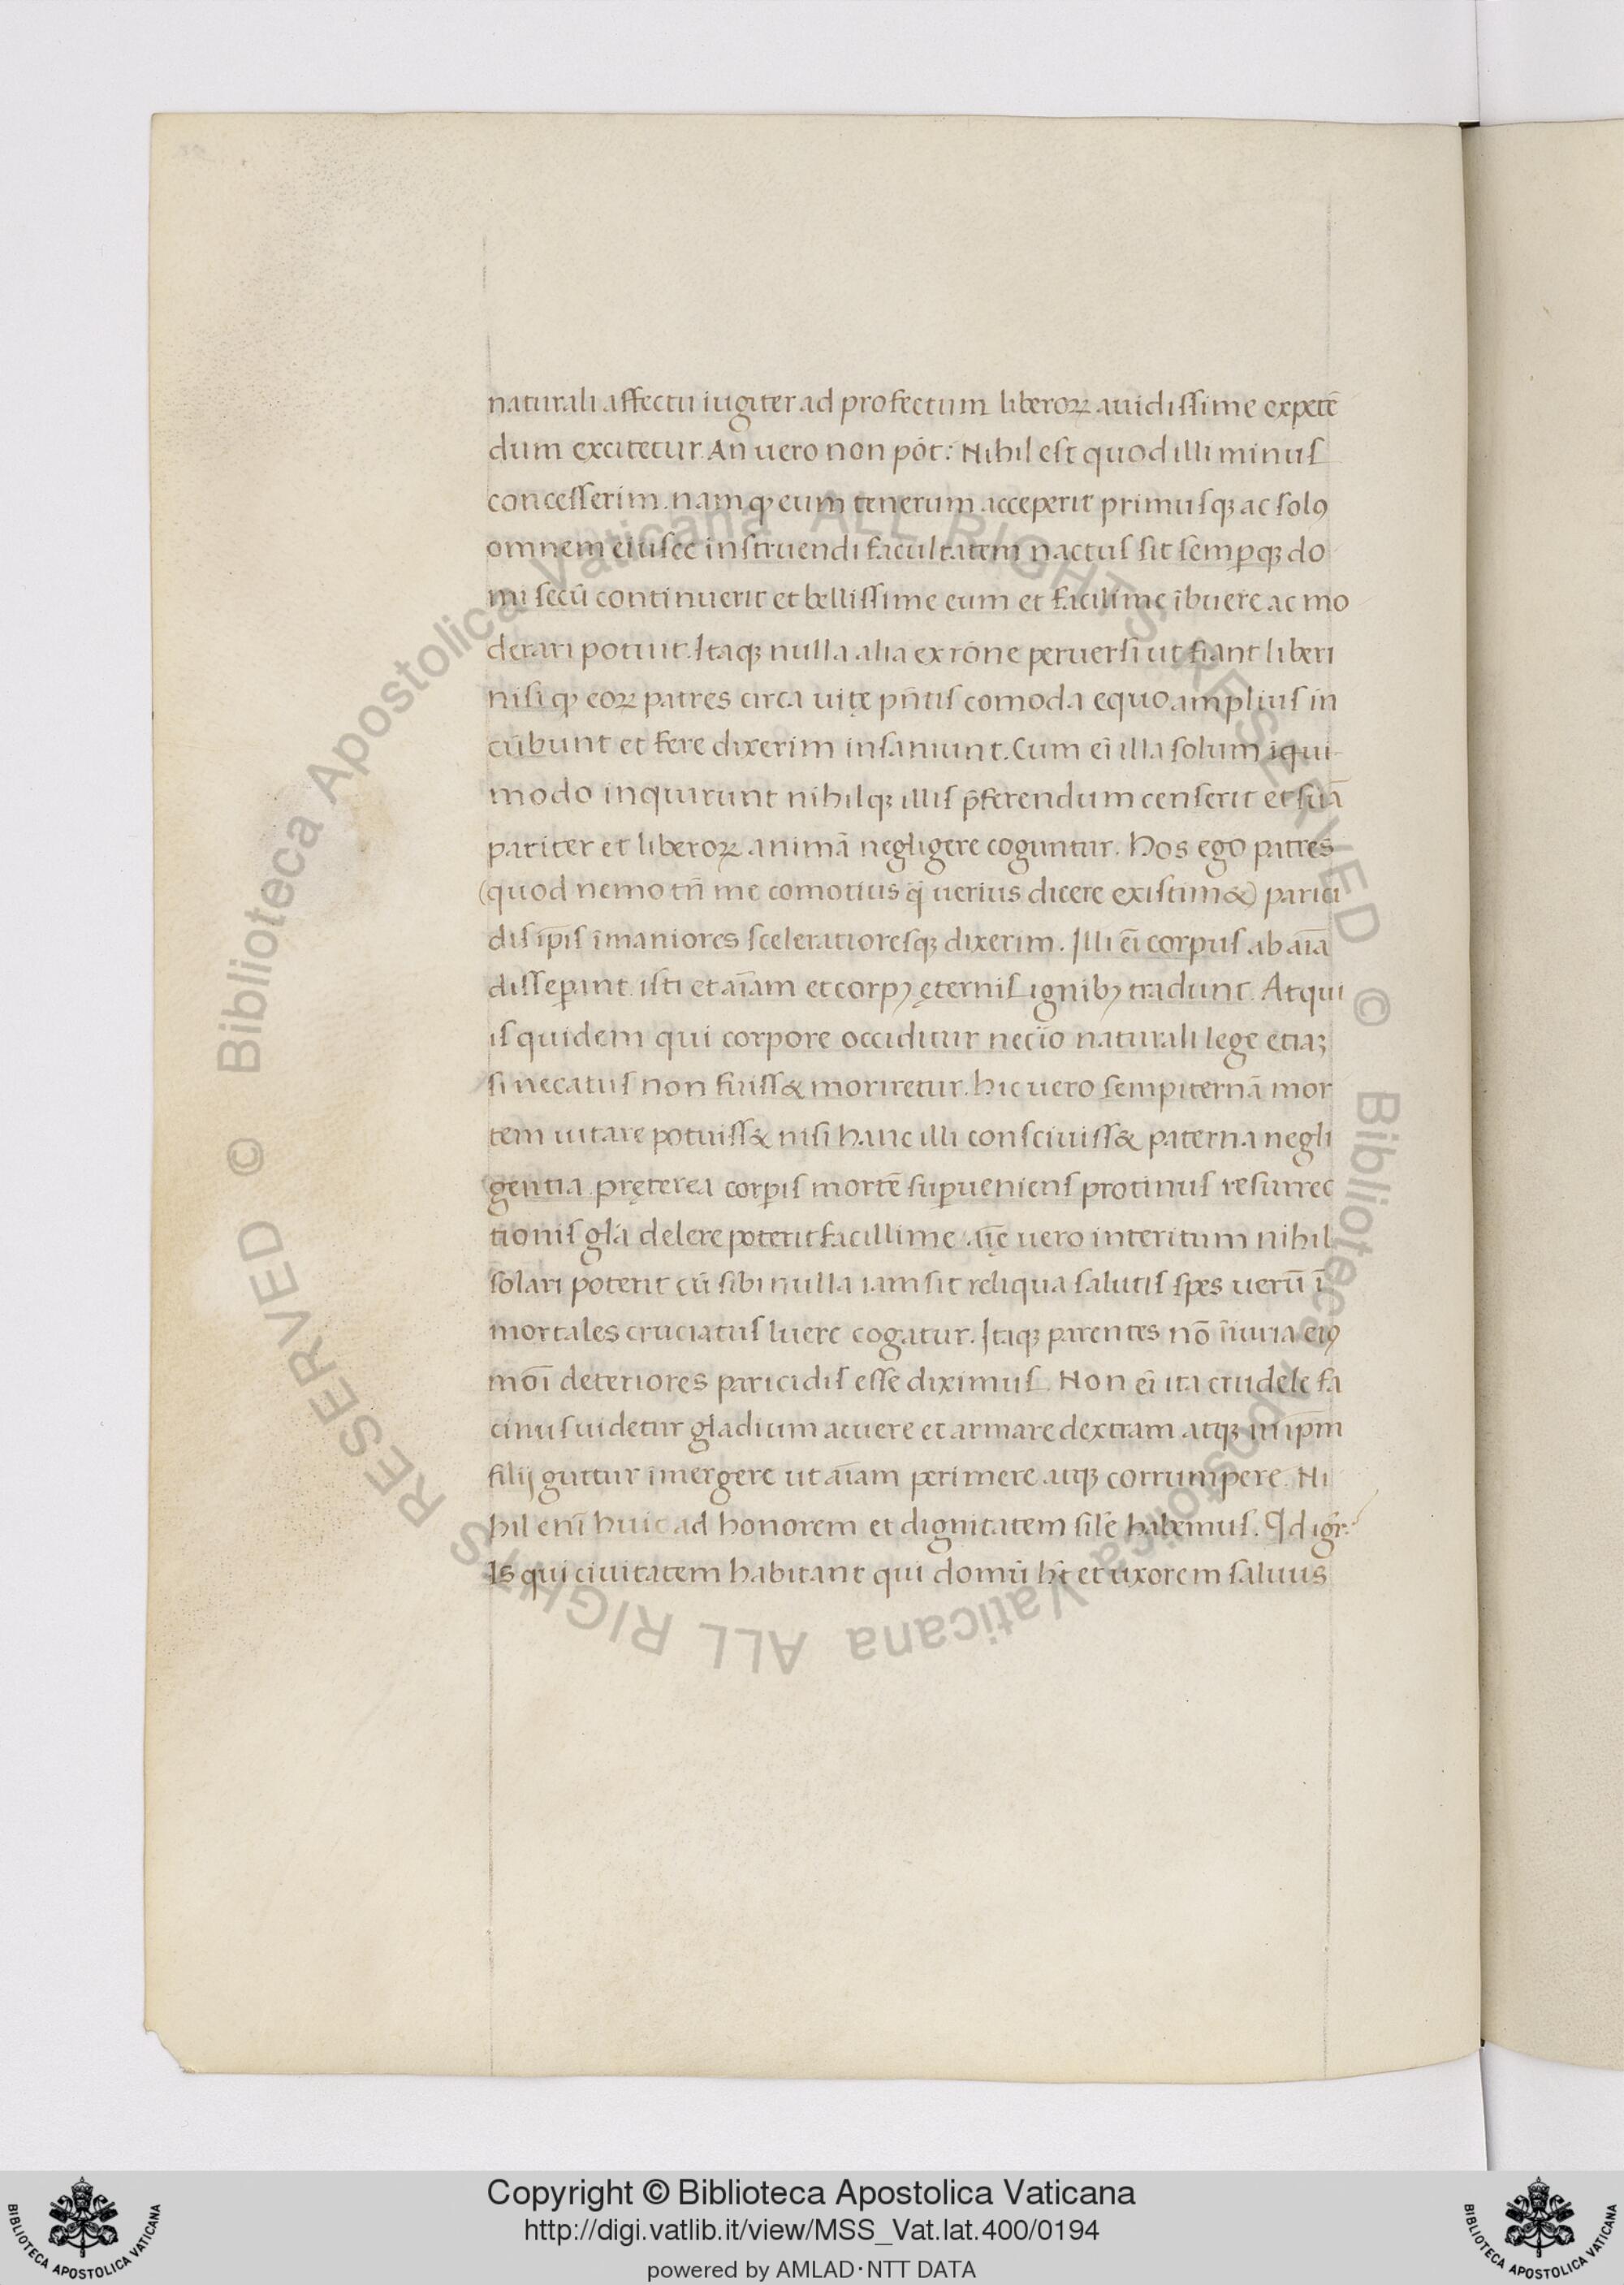 naturali affectu iugiter ad profectum liberoꝝ auidissime expetē
dum excitetur. An uero non pōt: Nihil est quod illi minus
concesserim. namqꝫ eum tenerum acceperit primusqꝫ ac solꝰ
omnem eiusce instruendi facultatem nactus sit semꝑqꝫ do
mi secū continuerit et bellissime eum et facilime ībuere ac mo
derari potuit. Itaqꝫ nulla alia ex rōne peruersi ut fiant liberi
nisi qꝫ eoꝝ patres circa uitę pn̄tis comoda equo amplius in
cūbunt et fere dixerim insaniunt. Cum eī illa solum īqui
modo inquirunt nihilqꝫ illis p̄ferendum censerit et suā
pariter et liberoꝝ animā negligere coguntur. Hos ego patres
(quod nemo tn̄ me comotius q̄ uerius dicere existim&) parici
dis ip̄is īmaniores sceleratioresqꝫ dixerim. Illi eī corpus ab aīa
disseꝑant. isti et aīam et corpꝰ ęternis ignibꝰ tradunt. Atqui
is quidem qui corpore occiditur necīo naturali lege etiaꝫ
si necatus non fuiss& moriretur. hic uero sempiternā mor
tem uitare potuiss& nisi hanc illi consciuiss& paterna negli
gentia. pręterea corꝑis mortē suꝑueniens protinus resurrec
tionis gl̄a delere poterit facillime. aīę uero interitum nihil
solari poterit cū sibi nulla iam sit reliqua salutis spes uerū ī
mortales cruciatus luere cogatur. Itaqꝫ parentes nō īiuria eiꝰ
moī deteriores paricidis esse diximus. Non eī ita crudele fa
cinus uidetur gladium acuere et armare dextram atqꝫ in ip̄m
filij guttur īmergere ut aīam perimere atqꝫ corrumpere. Ni
hil enī huic ad honorem et dignitatem sil̄e habemus. Qd igr̄.
Is qui ciuitatem habitant qui domū hn̄t et uxorem saluus
Copyright © Biblioteca Apostolica Vaticana
http://digi.vatlib.it/view/MSS_Vat.lat.400/0194
powered by AMLAD·NTT DATA
BIBLIOTECA APOSTOLICA VATICANA
BIBLIOTECA APOSTOLICA VATICANA
© Biblioteca Apostolica Vaticana ALL RIGHTS RESERVED © Biblioteca Apostolica Vaticana ALL RIGHTS RESERVED